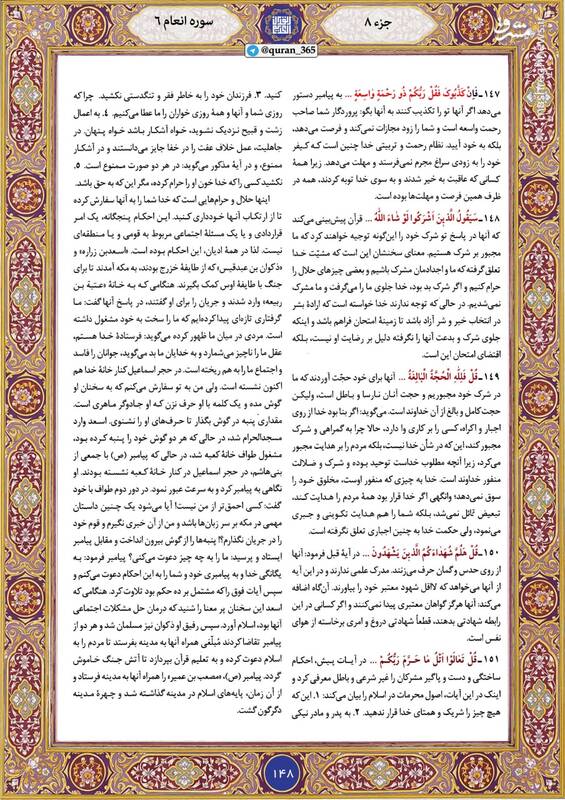 جزء ۸
سوره انعام ۶
@quran_365
مشرق
۱۴۷- فَإِنْ كَذَّبُوكَ فَقُلْ رَبُّكُمْ ذُو رَحْمَةٍ وَاسِعَةٍ ... به پیامبر دستور
می‌دهد اگر آنها تو را تکذیب کنند به آنها بگو: پروردگار شما صاحب
رحمت واسعه است و شما را زود مجازات نمی‌کند و فرصت می‌دهد،
بلکه به خود آیید. نظام رحمت و تربیتی خدا چنین است که کیفر
خود را به زودی سراغ مجرم نمی‌فرستد و مهلت می‌دهد. زیرا همهٔ
کسانی که عاقبت به خیر شدند و به سوی خدا توبه کردند، همه در
ظرف همین فرصت و مهلت‌ها بوده است.
۱۴۸- سَيَقُولُ الَّذِينَ أَشْرَكُوا لَوْ شَاءَ اللَّهُ ... قرآن پیش‌بینی می‌کند
که آنها در پاسخ تو شرک خود را این‌گونه توجیه خواهند کرد که ما
مجبور بر شرک هستیم. معنای سخنشان این است که مشیّت خدا
تعلق گرفته که ما و اجدادمان مشرک باشیم و بعضی چیزهای حلال را
حرام کنیم و اگر شرک بد بود، خدا جلوی ما را می‌گرفت و ما مشرک
نمی‌شدیم. در حالی که توجه ندارند خدا خواسته است که ارادهٔ بشر
در انتخاب خیر و شر آزاد باشد تا زمینهٔ امتحان فراهم باشد و اینکه
جلوی شرک و بدعت آنها را نگرفته دلیل بر رضایت او نیست، بلکه
اقتضای امتحان این است.
۱۴۹- قُلْ فَلِلَّهِ الْحُجَّةُ الْبَالِغَةُ ... آنها برای خود حجّت آوردند که ما
در شرک خود مجبوریم و حجت آنان نارسا و باطل است، ولیکن
حجت کامل و بالغ از آن خداوند است. می‌گوید: اگر بنا بود خدا از روی
اجبار و اکراه، کسی را بر کاری وا دارد، حالا چرا به گمراهی و شرک
مجبور کند، این که در شأن خدا نیست، بلکه مردم را بر هدایت مجبور
می‌کرد، زیرا آنچه مطلوب خداست توحید بوده و شرک و ضلالت
منفور خداوند است. خدا به چیزی که منفور اوست، مخلوق خود را
سوق نمی‌دهد؛ وانگهی اگر خدا قرار بود همهٔ مردم را هدایت کند،
تبعیض قائل نمی‌شد، بلکه شما را هم هدایت تکوینی و جبری
می‌نمود، ولی حکمت خدا به چنین اجباری تعلق نگرفته است.
۱۵۰- قُلْ هَلُمَّ شُهَدَاءَكُمُ الَّذِينَ يَشْهَدُونَ ... در آیهٔ قبل فرمود: آنها
از روی حدس و گمان حرف می‌زنند، مدرک علمی ندارند و در این آیه
از آنها می‌خواهد که لااقل شهود معتبر خود را بیاورند. آن‌گاه اضافه
می‌کند: آنها هرگز گواهان معتبری پیدا نمی‌کنند و اگر کسانی در این
رابطه شهادتی بدهند، قطعاً شهادتی دروغ و امری برخاسته از هوای
نفس است.
۱۵۱- قُلْ تَعَالَوْا أَتْلُ مَا حَرَّمَ رَبُّكُمْ ... در آیات پیش، احکام
ساختگی و دست و پاگیر مشرکان را غیر شرعی و باطل معرفی کرد و
اینک در این آیات، اصول محرمات در اسلام را بیان می‌کند: ۱. این که
هیچ چیز را شریک و همتای خدا قرار ندهید. ۲. به پدر و مادر نیکی
کنید. ۳. فرزندان خود را به خاطر فقر و تنگدستی نکشید. چرا که
روزی شما و آنها و همهٔ روزی خواران را ما عطا می‌کنیم. ۴. به اعمال
زشت و قبیح نزدیک نشوید، خواه آشکار باشد خواه پنهان. در
جاهلیت، عمل خلاف عفت را در خفا جایز می‌دانستند و در آشکار
ممنوع، و در آیهٔ مذکور می‌گوید: در هر دو صورت ممنوع است. ۵.
نکشید کسی را که خدا خون او را حرام کرده، مگر این که به حق باشد.
اینها حلال و حرام‌هایی است که خدا شما را به آنها سفارش کرده
تا از ارتکاب آنها خودداری کنید. این احکام پنجگانه، یک امر
قراردادی و یا یک مسئلهٔ اجتماعی مربوط به قومی و یا منطقه‌ای
نیست. لذا در همهٔ ادیان، این احکام بوده است. «اسعدبن زراره» و
«ذکوان بن عبدقیس» که از طایفهٔ خزرج بودند، به مکه آمدند تا برای
جنگ با طایفهٔ اوس کمک بگیرند. هنگامی که به خانهٔ «عتبة بن
ربیعه» وارد شدند و جریان را برای او گفتند، در پاسخ آنها گفت: ما
گرفتاری تازه‌ای پیدا کرده‌ایم که ما را سخت به خود مشغول داشته
است. مردی در میان ما ظهور کرده می‌گوید: فرستادهٔ خدا هستم،
عقل ما را ناچیز می‌شمارد و به خدایان ما بد می‌گوید، جوانان را فاسد
و اجتماع ما را به هم ریخته است. در حجر اسماعیل کنار خانهٔ خدا هم
اکنون نشسته است. ولی من به تو سفارش می‌کنم که به سخنان او
گوش مده و یک کلمه با او حرف نزن که او جادوگر ماهری است.
مقداری پنبه در گوش بگذار تا حرف‌های او را نشنوی. اسعد وارد
مسجدالحرام شد، در حالی که هر دو گوش خود را پنبه کرده بود،
مشغول طواف خانهٔ کعبه شد، در حالی که پیامبر (ص) با جمعی از
بنی‌هاشم، در حجر اسماعیل در کنار خانهٔ کعبه نشسته بودند. او
نگاهی به پیامبر کرد و به سرعت عبور نمود. در دور دوم طواف با خود
گفت: کسی احمق‌تر از من نیست! آیا می‌شود یک چنین داستان
مهمی در مکه بر سر زبان‌ها باشد و من از آن خبری نگیرم و قوم خود
را در جریان نگذارم؟! پنبه‌ها را از گوش بیرون انداخت و مقابل پیامبر
ایستاد و پرسید: ما را به چه چیز دعوت می‌کنی؟ پیامبر فرمود: به
یگانگی خدا و به پیامبری خود و شما را به این احکام دعوت می‌کنم و
سپس آیات فوق را که مشتمل بر ده حکم بود تلاوت کرد. هنگامی که
اسعد این سخنان پر معنا را شنید که درمان حل مشکلات اجتماعی
آنها بود، اسلام آورد. سپس رفیق او ذکوان نیز مسلمان شد و هر دو از
پیامبر تقاضا کردند مُبلّغی همراه آنها به مدینه بفرستد تا مردم را به
اسلام دعوت کرده و به تعلیم قرآن بپردازد تا آتش جنگ خاموش
گردد. پیامبر (ص)، «مصعب بن عمیر» را همراه آنها به مدینه فرستاد و
از آن زمان، پایه‌های اسلام در مدینه گذاشته شد و چهرهٔ مدینه
دگرگون گشت.
۱۴۸